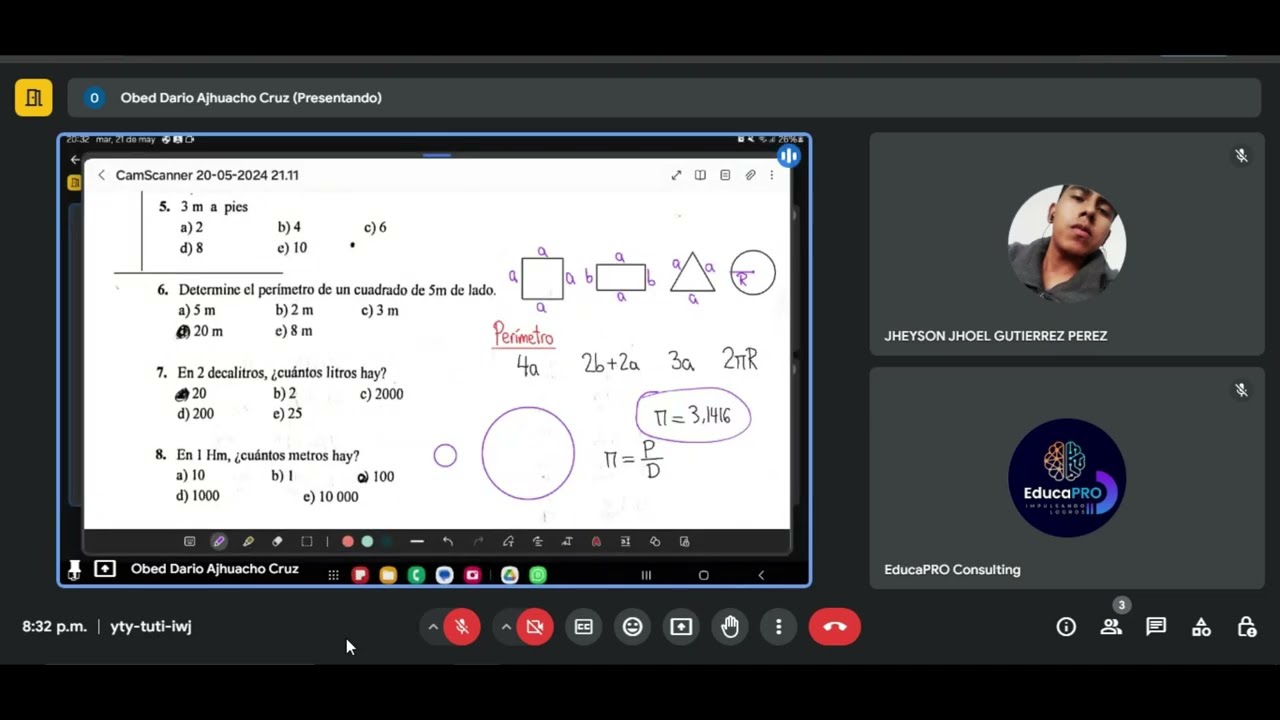 O Obed Dario Ajhuacho Cruz (Presentando)
20:32 mar, 21 de may
26%
CamScanner 20-05-2024 21.11
5. 3 m a pies
a) 2 b) 4 c) 6
d) 8 e) 10
6. Determine el perímetro de un cuadrado de 5m de lado.
a) 5 m b) 2 m c) 3 m
20 m e) 8 m
7. En 2 decalitros, ¿cuántos litros hay?
20 b) 2 c) 2000
d) 200 e) 25
8. En 1 Hm, ¿cuántos metros hay?
a) 10 b) 1 c) 100
d) 1000 e) 10 000
a a a a
a b a b
a a a
R
Perímetro
4a 2b+2a 3a 2πR
π = 3,1416
π = P/D
Obed Dario Ajhuacho Cruz
JHEYSON JHOEL GUTIERREZ PEREZ
EducaPRO
IMPULSANDO
LOGROS
EducaPRO Consulting
8:32 p.m. | yty-tuti-iwj
CC
3